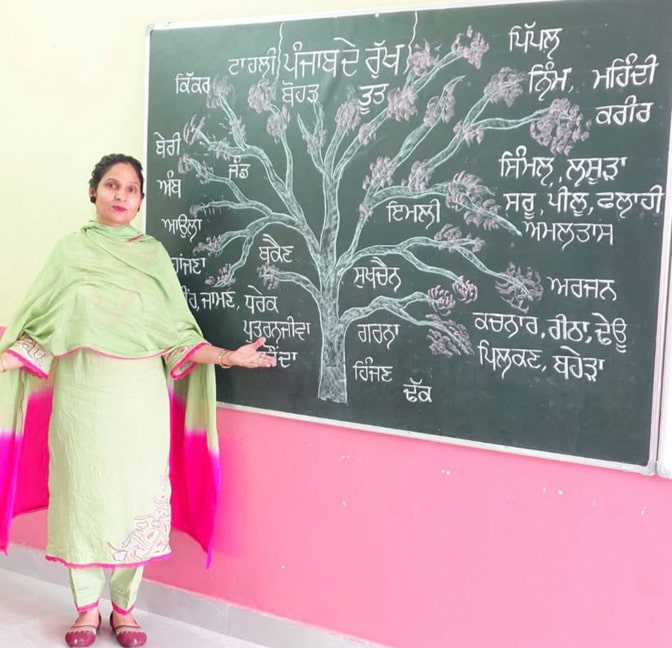 ਪੰਜਾਬ ਦੇ ਰੁੱਖ
ਟਾਹਲੀ
ਬੋਹੜ
ਤੂਤ
ਕਿੱਕਰ
ਬੇਰੀ
ਜੰਡ
ਅੰਬ
ਆਉਲਾ
ਹਾਂਜਣਾ
ਬੁਕੈਣ
ਜਾਮਣ, ਧਰੇਕ
ਪੁਤਰਨਜੀਵਾ
ਪਿੱਪਲ਼
ਨਿੰਮ, ਮਹਿੰਦੀ
ਕਰੀਰ
ਸਿੰਮਲ਼, ਲਸੂੜਾ
ਸਰੂ, ਪੀਲੂ, ਫਲਾਹੀ
ਅਮਲਤਾਸ
ਇਮਲੀ
ਸੁਖਚੈਨ
ਅਰਜਨ
ਗਰਨਾ
ਕਚਨਾਰ, ਰੀਠਾ, ਢੇਊ
ਪਿਲਕਣ, ਬਹੇੜਾ
ਹਿੰਜਣ
ਢੱਕ